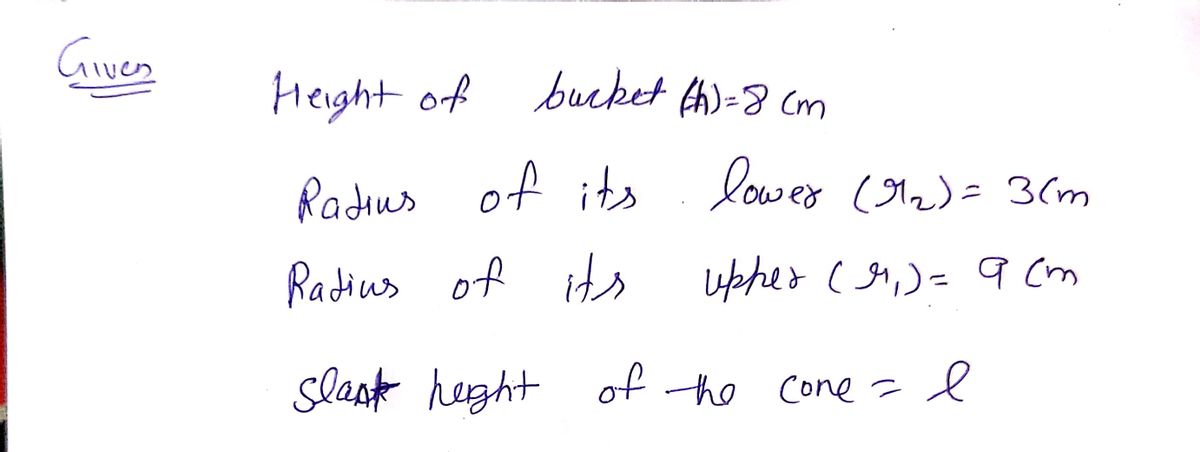 Given
Height of bucket (h)=8 cm
Radius of its lower (r₂)= 3cm
Radius of its upper (r₁)= 9 cm
slant height of the cone = l